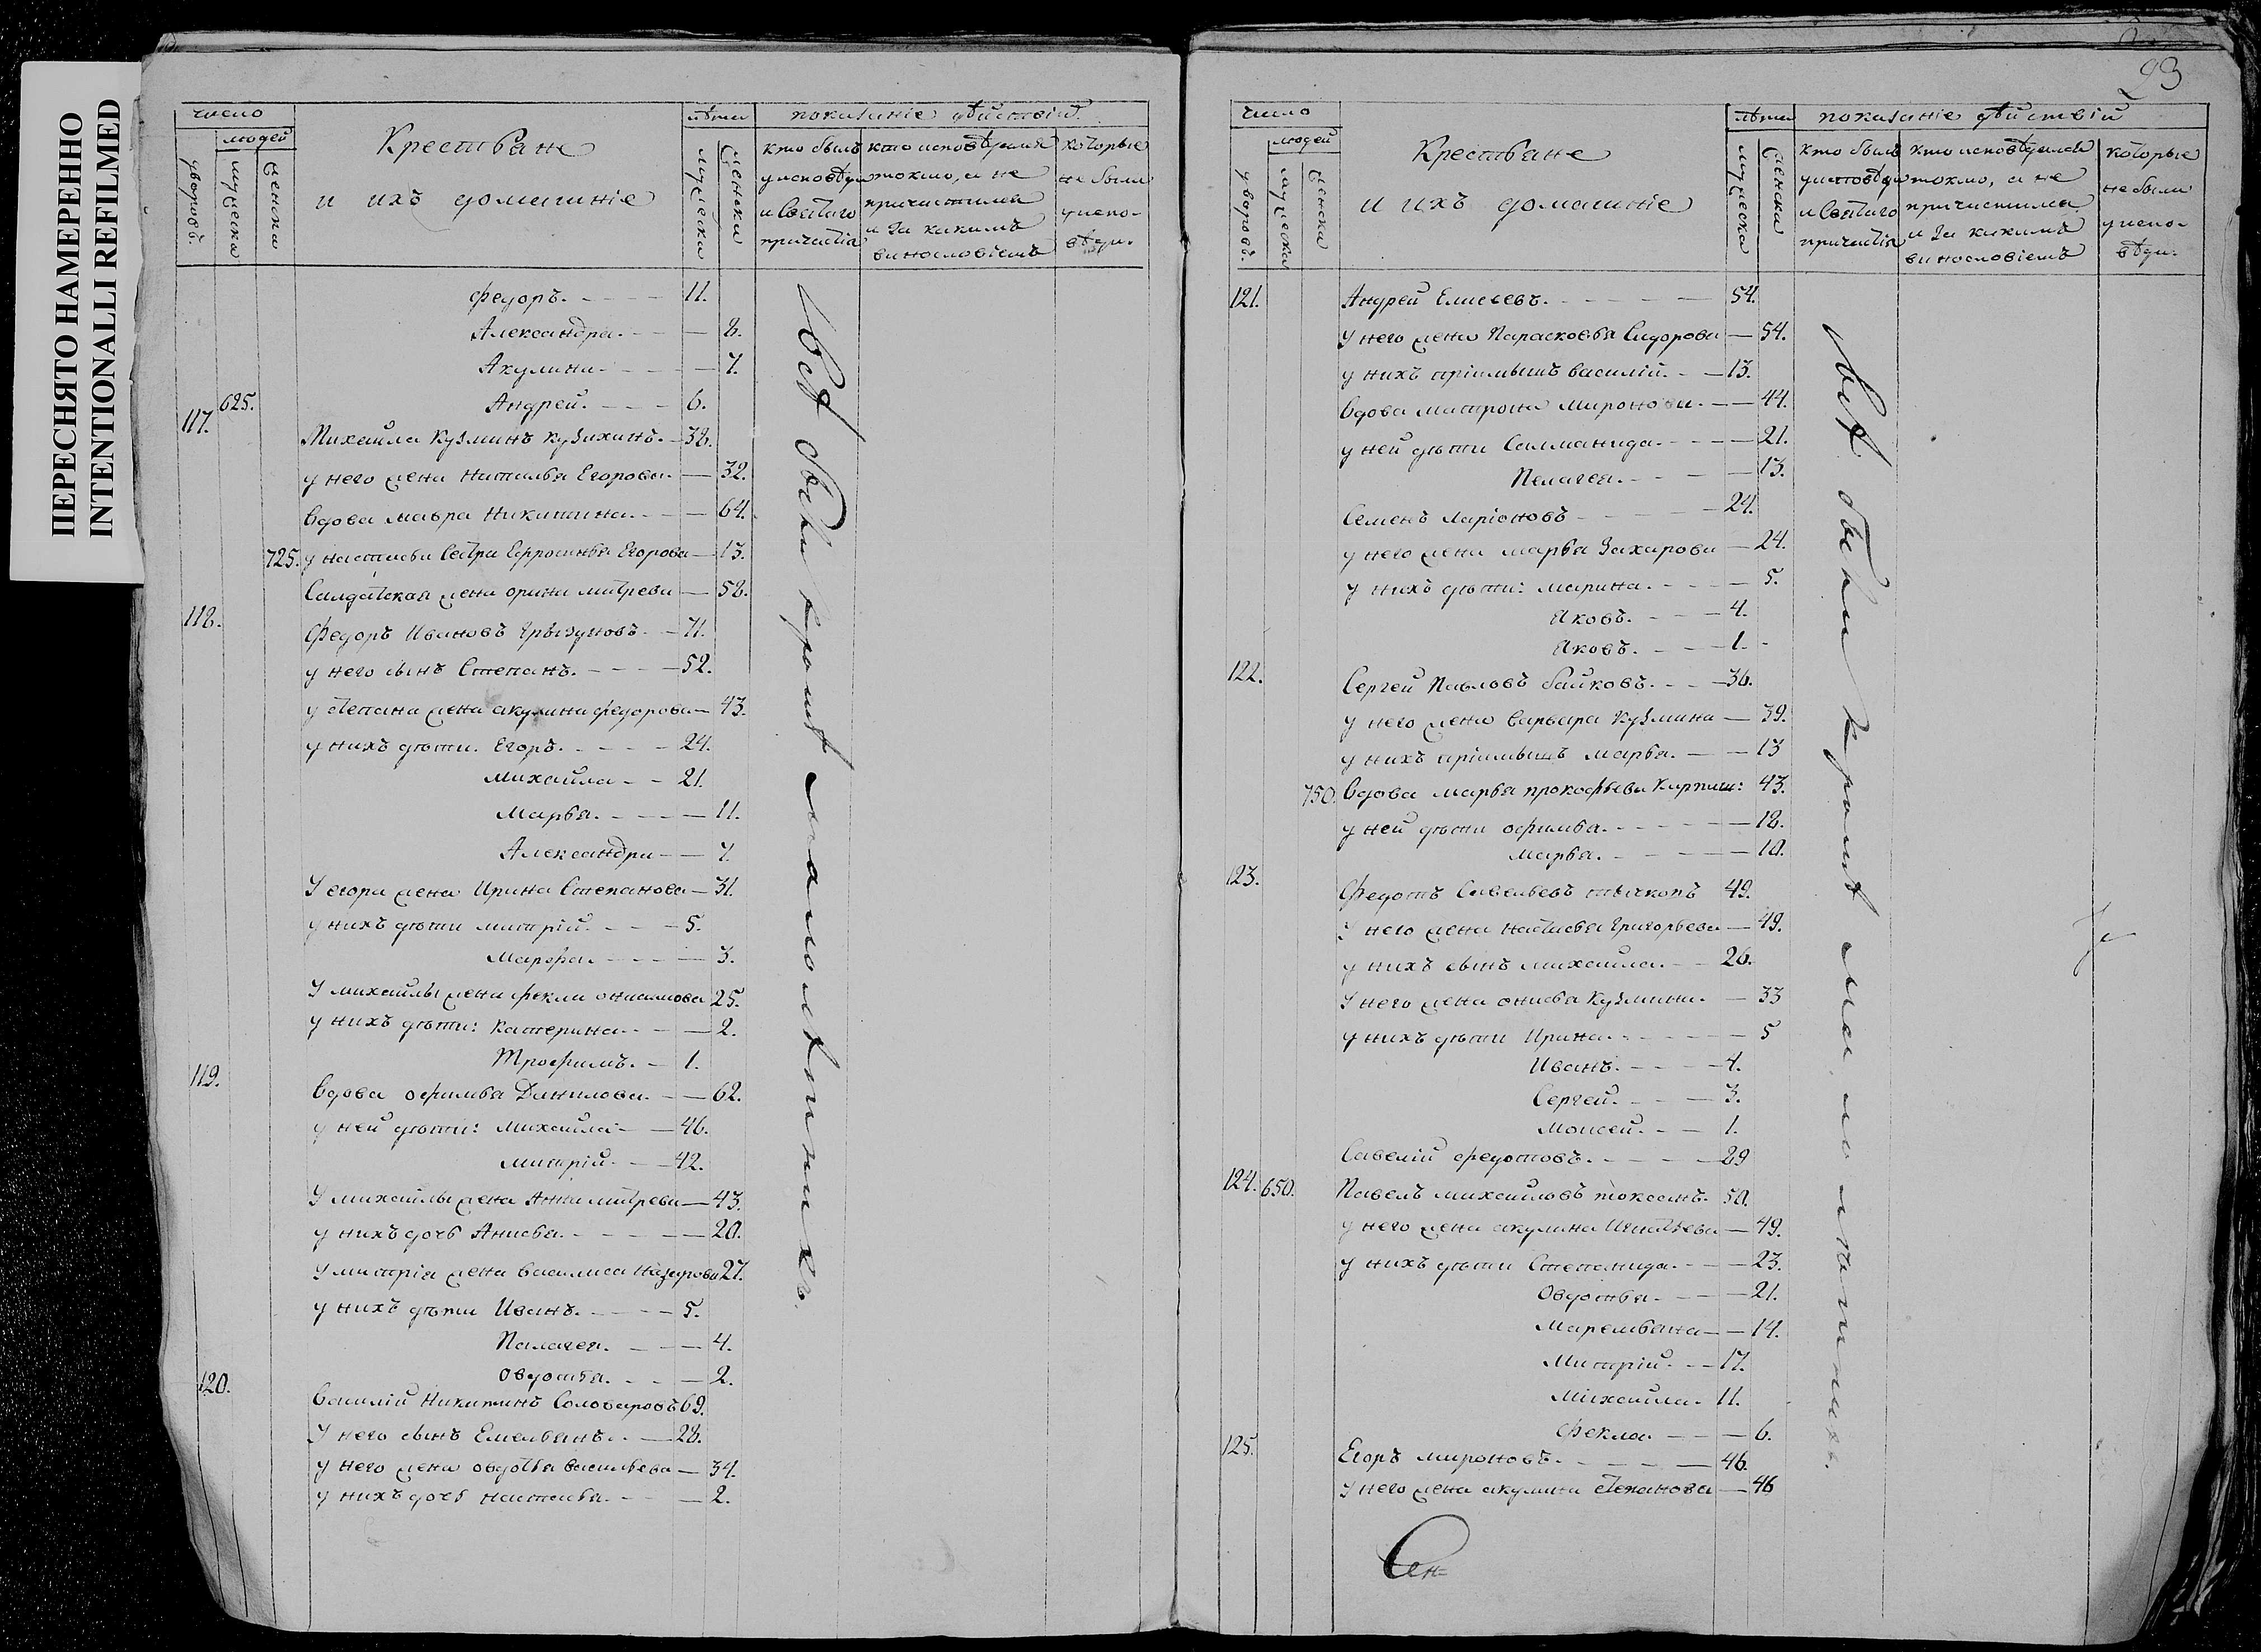 ПЕРЕСНЯТО НАМЕРЕННО
INTENTIONALLI REFILMED
число
людей
дворовъ.
мужеска
женска
Крестьяне
и ихъ домашніе
лѣта
мужеска
женска
показаніе дѣйствій.
кто былъ у исповѣди и Святаго причастія
кто исповѣдался токмо, а не причастился и за какимъ винословіемъ
которые не были у испо-вѣди.
Федоръ. 11.
Александра. 8.
Акулина. 7.
625. Андрей. 6.
117. Михайла Кузминъ Кузихинъ. 38.
у него жена Наталья Егорова. 32.
вдова мавра Никитина. 64.
725. у настасьи Сестра Ефросинья Егорова 13.
Салдатская жена орина митрева 58.
118. Федоръ Ивановъ Грызуновъ. 71.
у него сынъ Степанъ. 52.
у степана жена акулина федорова 43.
у нихъ дѣти. Егоръ. 24.
Михайла 21.
Марья. 11.
Александра 7.
У егора жена Ирина Степанова 31.
у нихъ дѣти митрій. 5.
Марфа. 3.
У михайлы жена фекла онисимова 25.
у нихъ дѣти: катерина. 2.
Трофимъ. 1.
119. вдова офимья Данилова. 62.
у ней дѣти: Михайла 46.
митрій. 42.
У михайлы жена Анна митрева 43.
у нихъ дочь Анисья. 20.
У митрія жена василиса Назарова 27.
у нихъ дѣти Иванъ. 5.
Палагея. 4.
Овдотья. 2.
120. Василій Никитинъ Соловаровъ 69.
У него сынъ Емельянъ. 28.
у него жена овдотья васильева 34.
у нихъ дочь настасья. 2.
всѣ были кромѣ малолѣтнихъ.
23
число
людей
дворовъ.
мужеска
женска
Крестьяне
и ихъ домашніе
лѣта
мужеска
женска
показаніе дѣйствій
кто былъ у исповѣди и Святаго причастія
кто исповѣдался токмо, а не причастился и за какимъ винословіемъ
которые не были у испо-вѣди.
121. Андрей Елисеевъ. 54.
У него жена Парасковья Сидорова 54.
у нихъ пріимышъ василій. 13.
вдова матрона миронова. 44.
у ней дѣти Саламанида. 21.
Пелагея. 13.
Семенъ Ларіоновъ 24.
у него жена марья Захарова 24.
у нихъ дѣти: марина. 5.
Яковъ. 4.
Яковъ. 1.
122. Сергей Павловъ байковъ. 36.
у него жена варвара Кузмина 39.
у нихъ пріимышъ марья. 13
750. вдова марья прокофьева Карпиш: 43.
у ней дѣти офимья. 18.
марья. 10.
123. Федотъ Савельевъ 49.
у него жена настасья григорьева 49.
у нихъ сынъ михайла. 26.
У него жена онисья Кузмина. 33
у нихъ дѣти Ирина. 5
Иванъ. 4.
Сергей. 3.
моисей. 1.
Савелій федотовъ. 29
124. 650. Павелъ михайловъ 50.
у него жена акулина Игнатьева 49.
у нихъ дѣти Степанида. 23.
Овдотья. 21.
Маремьяна 14.
Митрій. 17.
Михайла. 11.
Фекла 6.
125. Егоръ мироновъ. 46.
У него жена акулина степанова 46
всѣ были кромѣ малолѣтнихъ.
Сен=